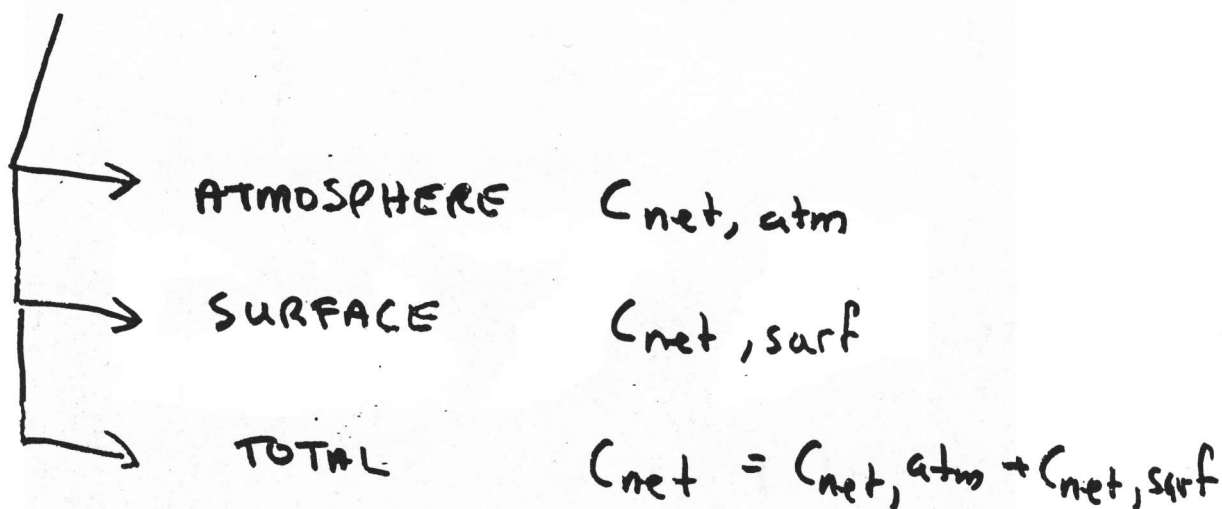 ATMOSPHERE Cnet, atm
SURFACE Cnet, surf
TOTAL Cnet = Cnet, atm + Cnet, surf